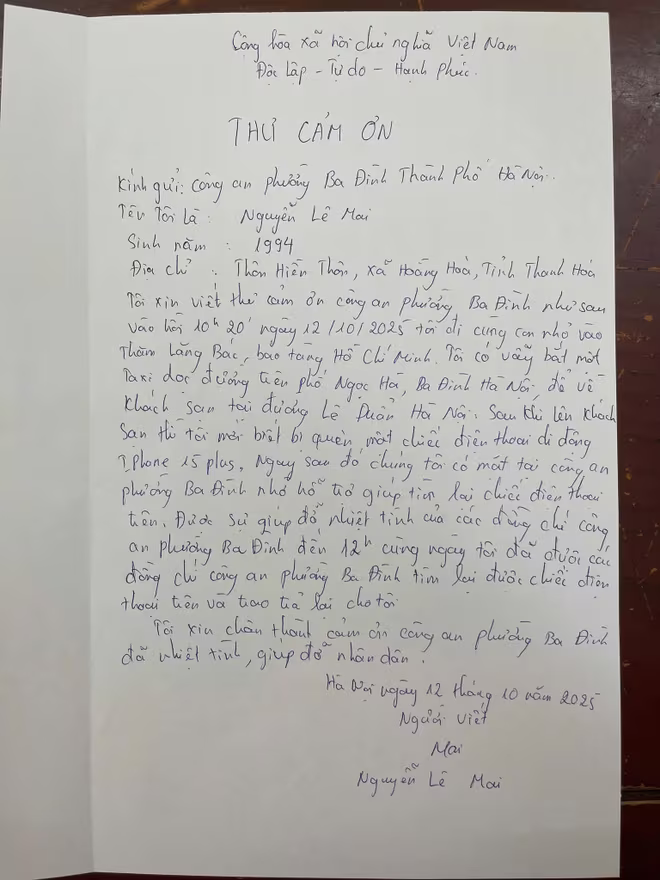 Cộng hòa xã hội chủ nghĩa Việt Nam
Độc lập - Tự do - Hạnh phúc.
THƯ CẢM ƠN
Kính gửi: Công an phường Ba Đình Thành Phố Hà Nội.
Tên Tôi Là : Nguyễn Lê Mai
Sinh năm : 1994
Địa chỉ : Thôn Hiền Thôn, xã Hoằng Hoá, Tỉnh Thanh Hóa
Tôi xin viết thư cảm ơn công an phường Ba Đình như sau
vào hồi 10h 20' ngày 12/10/2025 tôi đi cùng con nhỏ vào
Thăm Lăng Bác, bảo tàng Hồ Chí Minh. Tôi có vẫy bắt một
Taxi dọc đường trên phố Ngọc Hà, Ba Đình Hà Nội, để về
khách sạn tại đường Lê Duẩn Hà Nội. Sau khi lên khách
sạn thì tôi mới biết bị quên mất chiếc điện thoại di động
Iphone 15 plus, Ngay sau đó chúng tôi có mặt tại công an
phường Ba Đình nhờ hỗ trợ giúp tìm lại chiếc điện thoại
trên. Được sự giúp đỡ nhiệt tình của các đồng chí công
an phường Ba Đình đến 12h cùng ngày tôi đã được các
đồng chí công an phường Ba Đình tìm lại được chiếc điện
thoại trên và trao trả lại cho tôi
Tôi xin chân thành cảm ơn công an phường Ba Đình
đã nhiệt tình, giúp đỡ nhân dân.
Hà Nội ngày 12 tháng 10 năm 2025
Người viết
Mai
Nguyễn Lê Mai